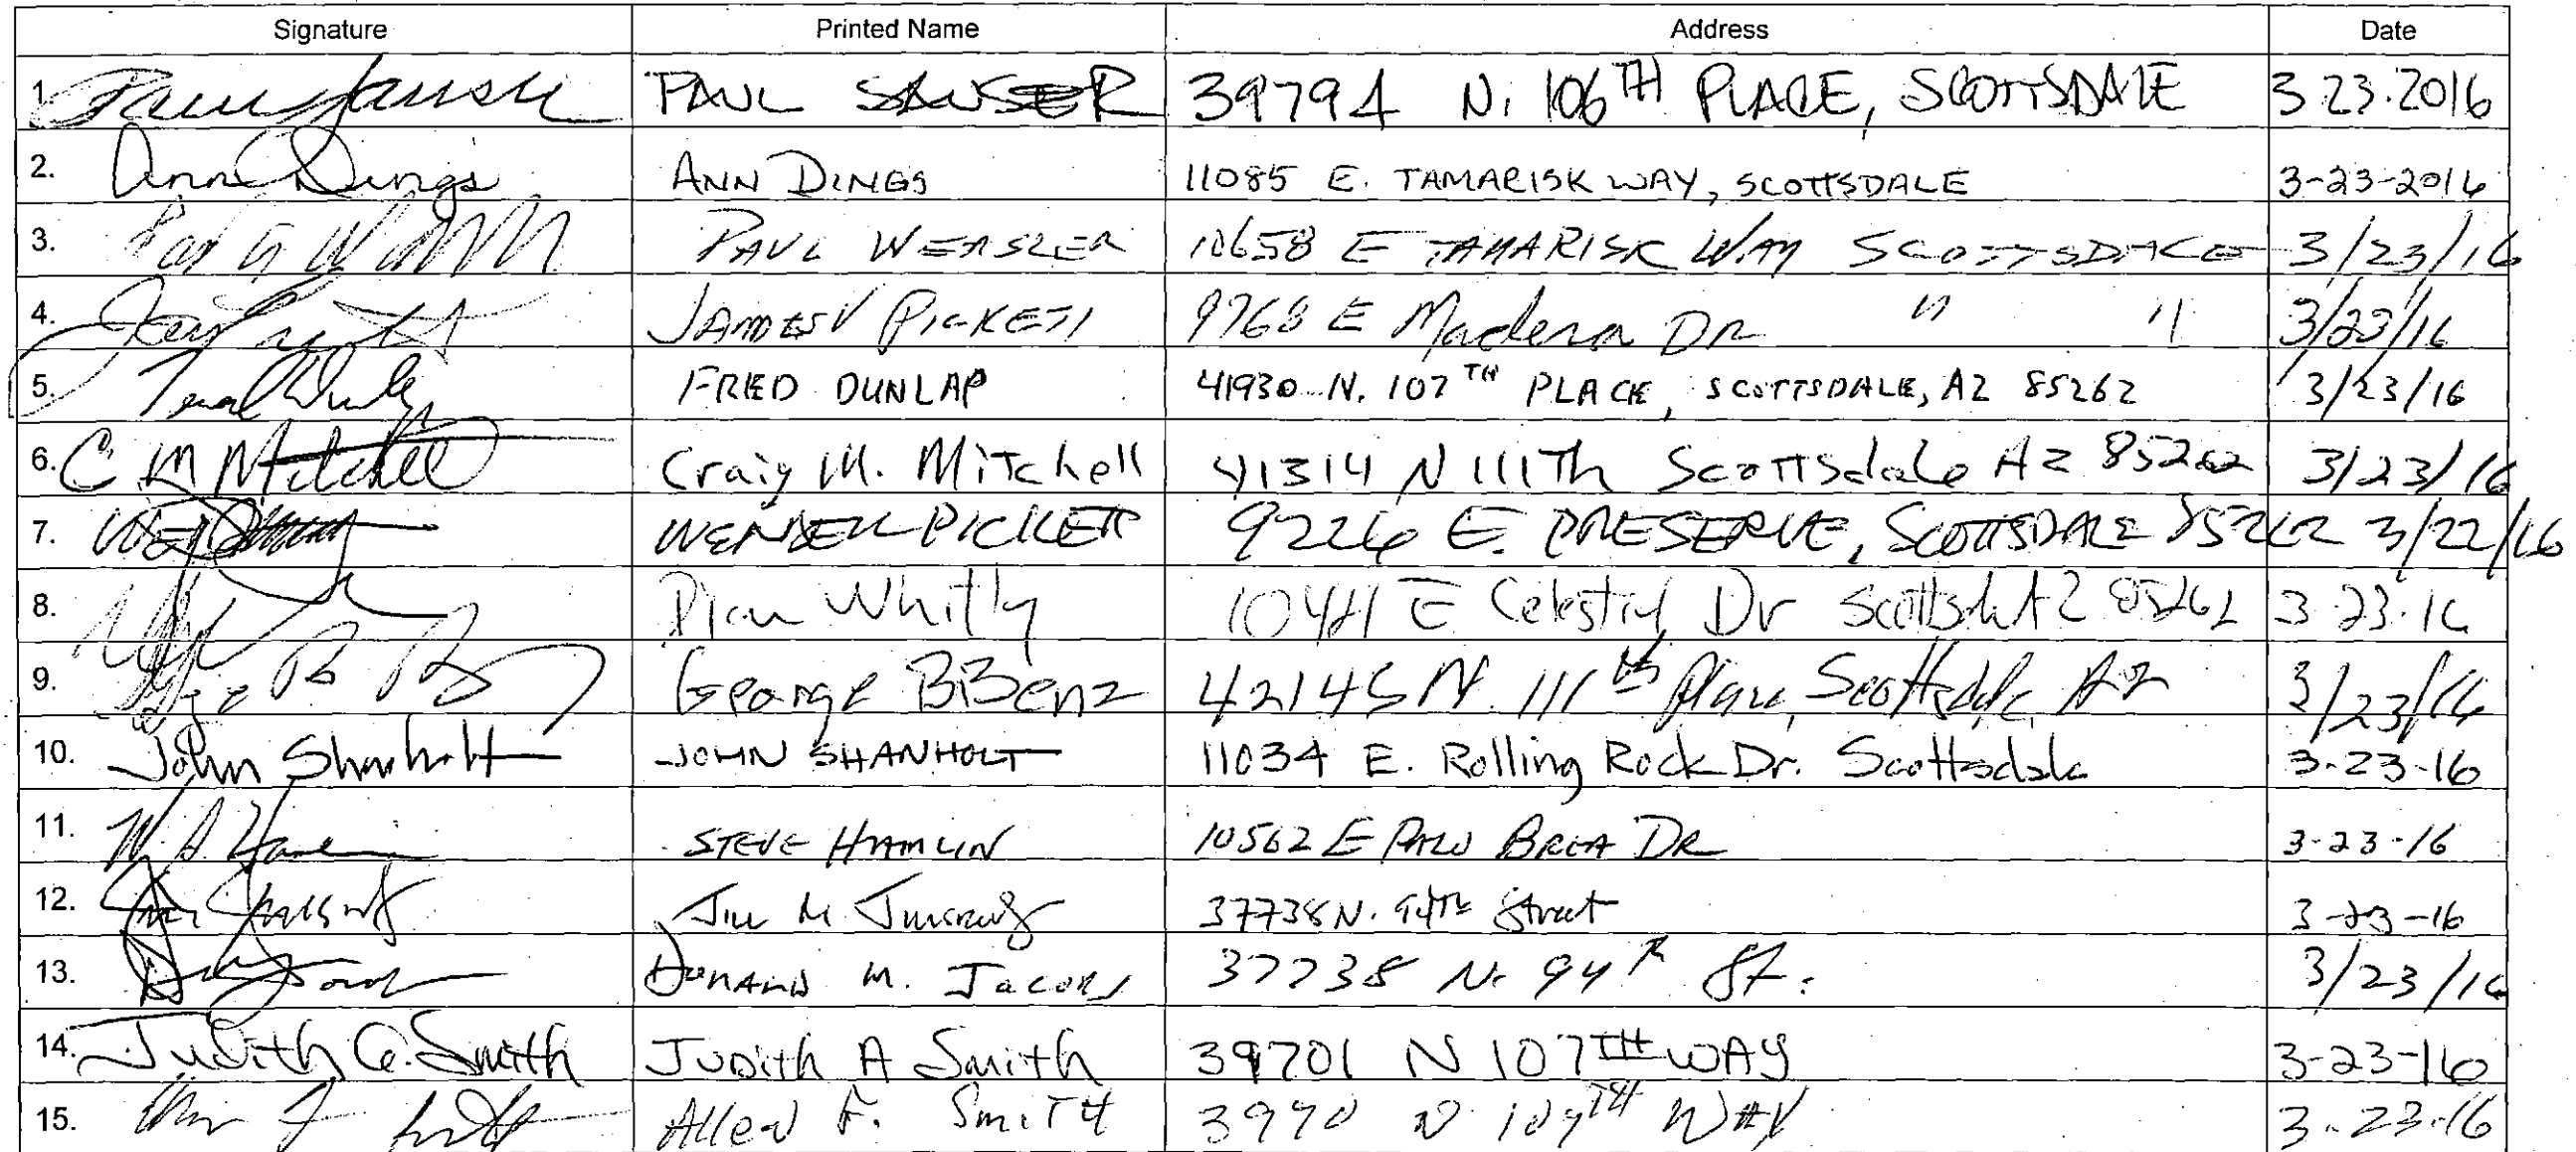 Signature Printed Name Address Date
1. PAUL SAUSER 39794 N. 106TH PLACE, SCOTTSDALE 3.23.2016
2. Ann Dings ANN DINGS 11085 E. TAMARISK WAY, SCOTTSDALE 3-23-2016
3. PAUL WEASLER 10658 E TAMARISK WAY SCOTTSDALE 3/23/16
4. JAMES V PICKETT 9768 E Madera DR " " 3/23/16
5. FRED DUNLAP 41930 N. 107TH PLACE, SCOTTSDALE, AZ 85262 3/23/16
6. C M Mitchell Craig M. Mitchell 41314 N 111Th Scottsdale AZ 85262 3/23/16
7. WENDELL PICKER 9226 E. PRESERVE, SCOTTSDALE 85262 3/22/16
8. Whitly E Celestial Dr 85262 3-23-16
9. George B Benz 42145 N. 111th Place, Scottsdale, AZ 3/23/16
10. John Shanholt JOHN SHANHOLT 11034 E. Rolling Rock Dr. Scottsdale 3-23-16
11. STEVE HAMLIN 10562 E PALO BREA DR 3-23-16
12. Jill M 37738 N. 94Th Street 3-23-16
13. DONALD M. Jacobs 37738 N. 94th St. 3/23/16
14. Judith A. Smith Judith A Smith 39701 N 107TH WAY 3-23-16
15. Allen F. SmiTH N 107TH WAY 3-23-16